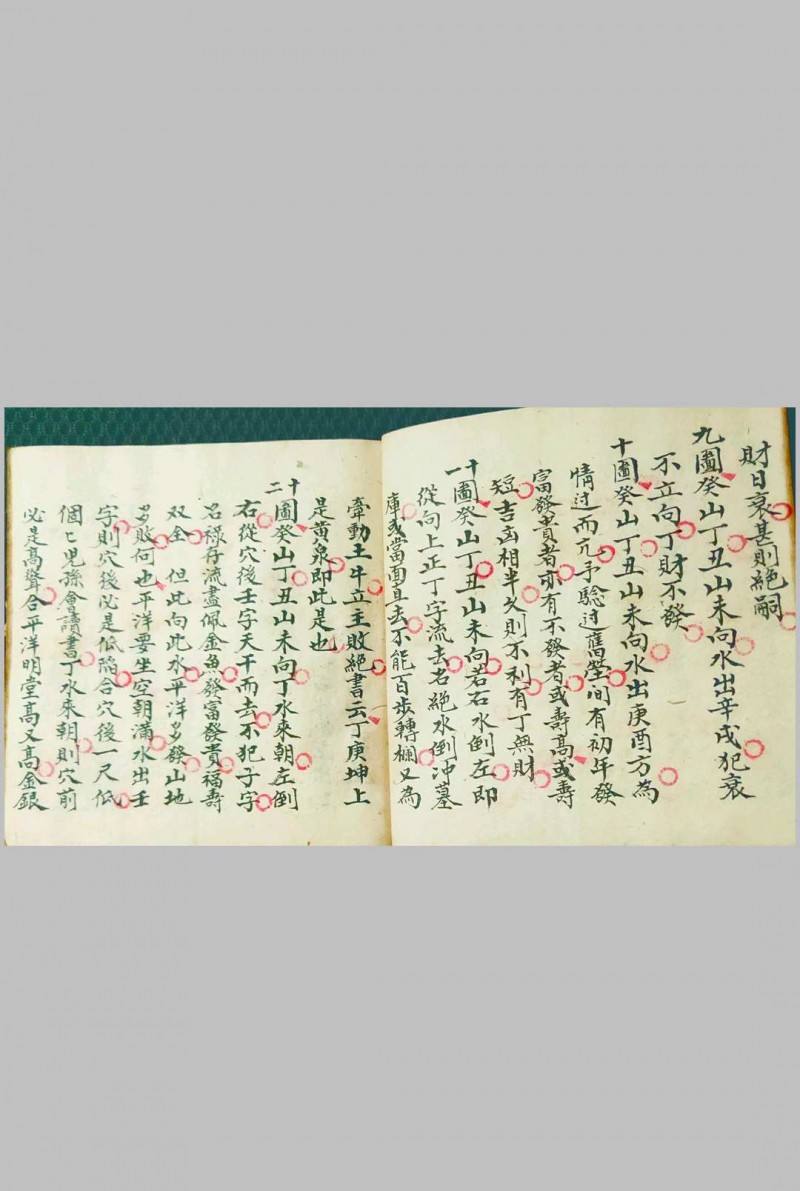 財日衰甚則絕嗣
九圖癸山丁丑山未向水出辛戌犯衰
不立向丁財不發
十圖癸山丁丑山未向水出庚酉方為
情过而亢予驗过舊塋间有初年發
富發貴者亦有不發者或壽高或壽
短吉凶相半久則不利有丁無財
十一圖癸山丁丑山未向若右水倒左即
從向上正丁字流去名絕水倒冲墓
庫或當面直去不能百步轉欄又為
牽動土牛立主敗絕書云丁庚坤上
是黃泉即此是也
十二圖癸山丁丑山未向丁水來朝左倒
右從穴後壬字天干而去不犯子字
名禄存流盡佩金魚發富發貴福壽
双全　但此向此水平洋多發山地
多敗何也平洋要坐空朝满水出壬
字則穴後必是低陷合穴後一尺低
個〻兒孫會讀書丁水來朝則穴前
必是高聳合平洋明堂高又高金銀